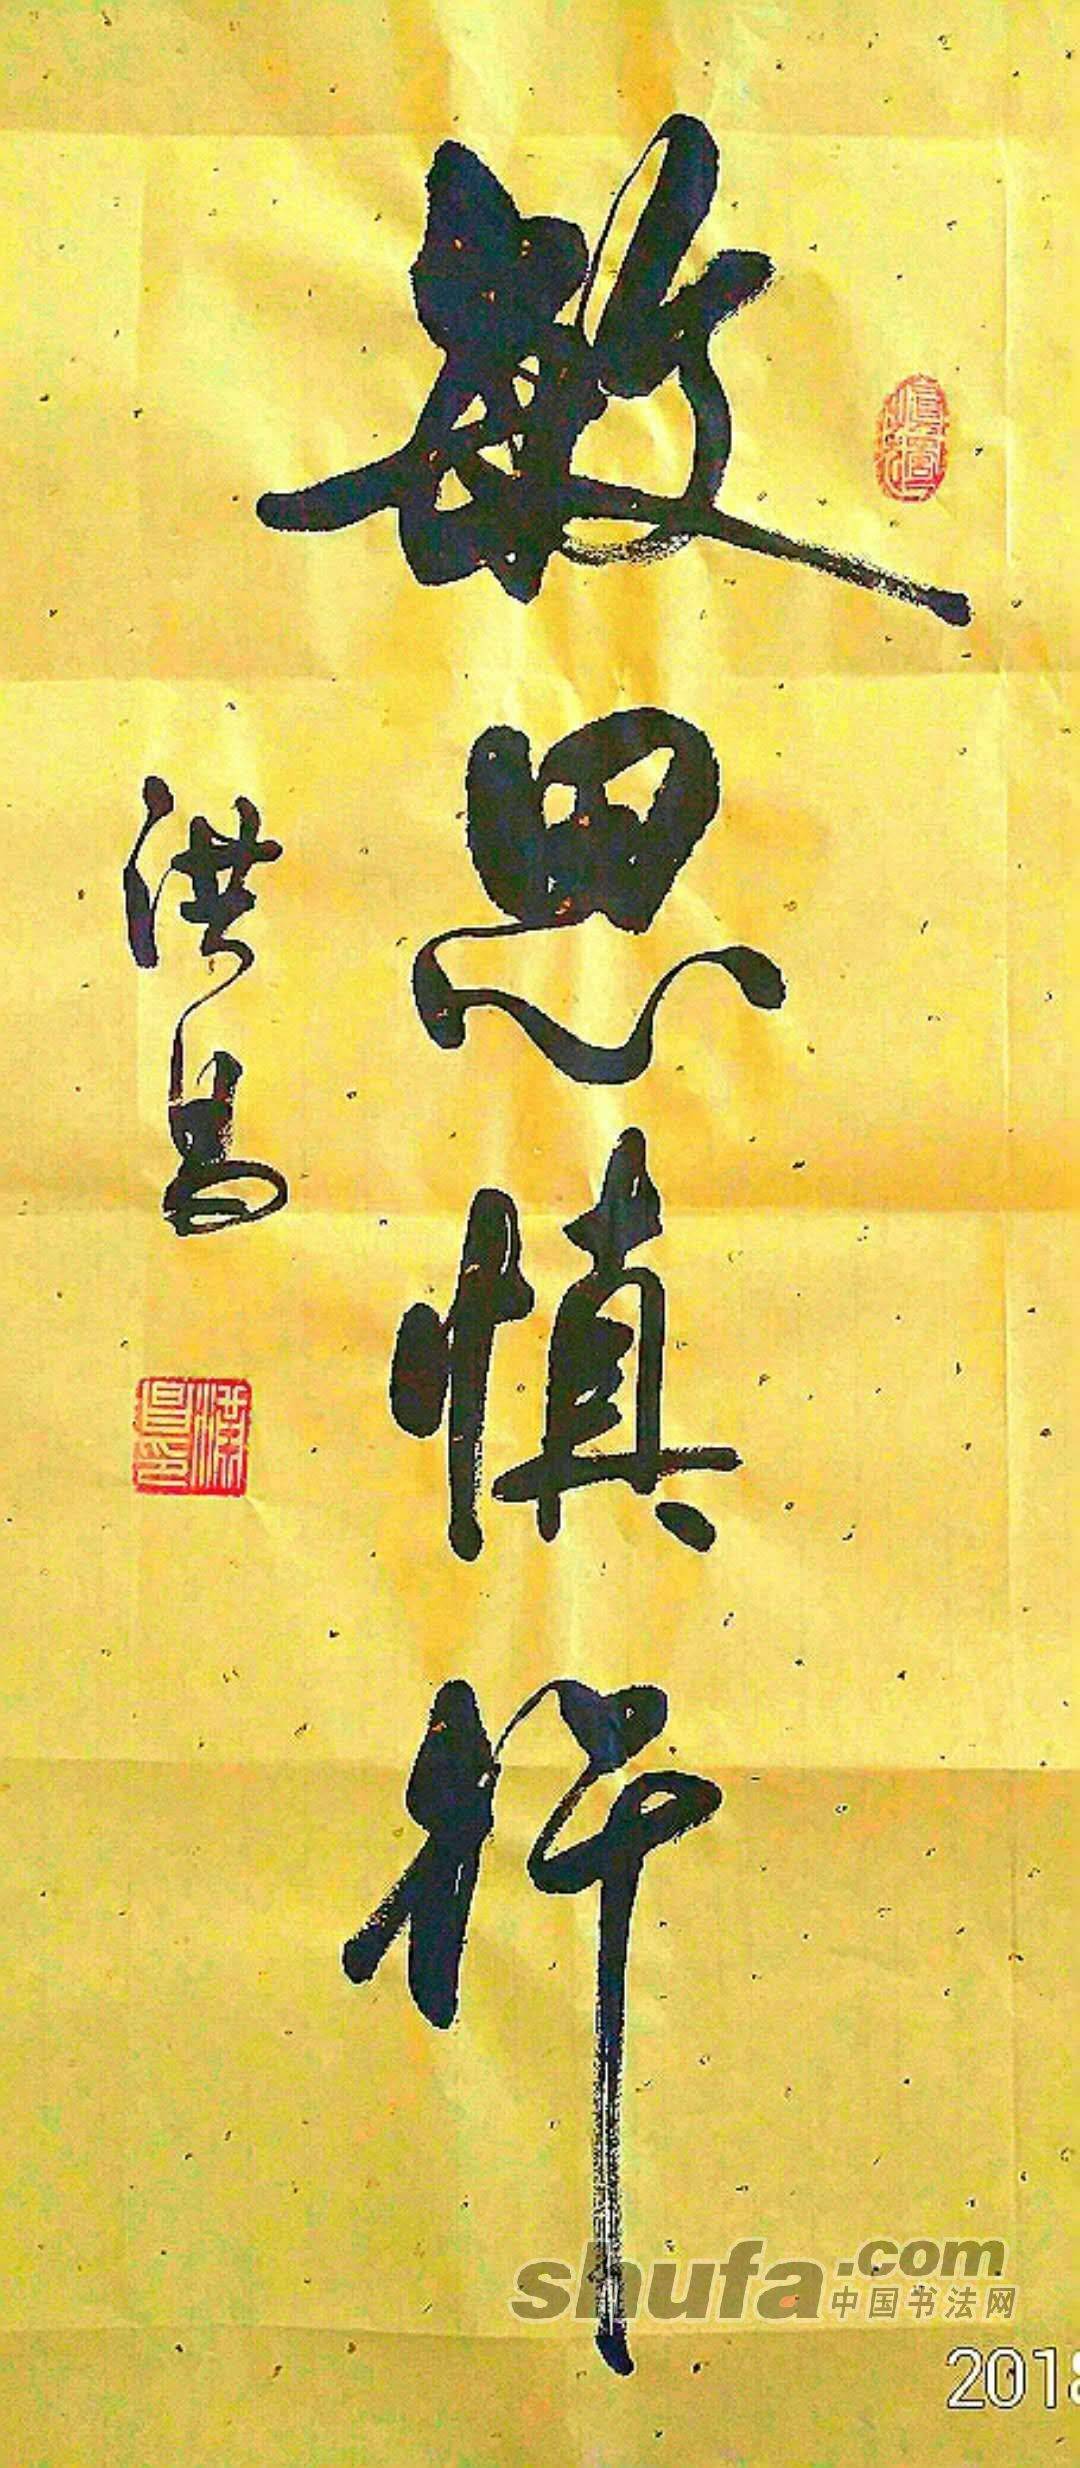 敏思慎行
洪昌
shufa.com
中国书法网
2018